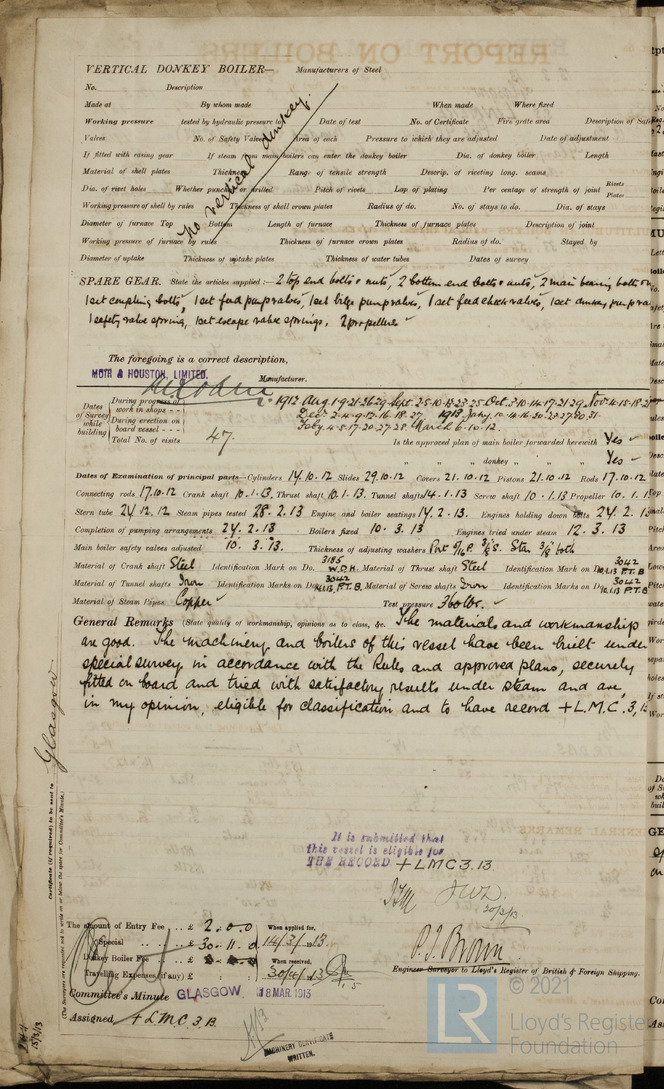 VERTICAL DONKEY BOILER— Manufacturers of Steel
No. Description
Made at By whom made When made Where fixed
Working pressure tested by hydraulic pressure to Date of test No. of Certificate Fire grate area Description of Safety
Valves No. of Safety Valves Area of each Pressure to which they are adjusted Date of adjustment
If fitted with easing gear If steam from main boilers can enter the donkey boiler Dia. of donkey boiler Length
Material of shell plates Thickness Range of tensile strength Descrip. of riveting long. seams
Dia. of rivet holes Whether punched or drilled Pitch of rivets Lap of plating Per centage of strength of joint Rivets Plates
Working pressure of shell by rules Thickness of shell crown plates Radius of do. No. of stays to do. Dia. of stays
Diameter of furnace Top Bottom Length of furnace Thickness of furnace plates Description of joint
Working pressure of furnace by rules Thickness of furnace crown plates Radius of do. Stayed by
Diameter of uptake Thickness of uptake plates Thickness of water tubes Dates of survey
no vertical donkey.
SPARE GEAR. State the articles supplied:— 2 top end bolts & nuts, 2 bottom end bolts & nuts, 2 main bearing bolts
1 set coupling bolts, 1 set feed pump valves, 1 set bilge pump valves, 1 set feed check valves, 1 set donkey pump
1 safety valve spring, 1 set escape valve springs, 2 propellers
The foregoing is a correct description,
MUIR & HOUSTON, LIMITED. Manufacturer.
Dates of Survey while building
During progress of work in shops - - 1912 Aug. 1. 9. 21. 26. 29. Sept. 2. 5. 10. 18. 23. 25. Oct. 3. 10. 14. 17. 21. 29. Nov. 4. 15. 18.
During erection on board vessel - - - Decr. 2. 4. 9. 12. 16. 18. 27. 1913 Jany. 10. 14. 16. 20. 23. 27. 30. 31.
Feby. 4. 5. 17. 20. 27. 28. March 6. 10. 12.
Total No. of visits 47. Is the approved plan of main boiler forwarded herewith Yes
" " " donkey " " " Yes
Dates of Examination of principal parts—Cylinders 14.10.12 Slides 29.10.12 Covers 21.10.12 Pistons 21.10.12 Rods 17.10.12
Connecting rods 17.10.12 Crank shaft 10.1.13 Thrust shaft 10.1.13 Tunnel shafts 14.1.13 Screw shaft 10.1.13 Propeller 10.1.13
Stern tube 24.12.12 Steam pipes tested 28.2.13 Engine and boiler seatings 14.2.13. Engines holding down bolts 24.2.13
Completion of pumping arrangements 24.2.13 Boilers fixed 10.3.13 Engines tried under steam 12.3.13
Main boiler safety valves adjusted 10.3.13. Thickness of adjusting washers Port 5/16 P. 3/8 S. Star. 3/8 both
Material of Crank shaft Steel Identification Mark on Do. 3185 W.D.H. Material of Thrust shaft Steel Identification Mark on Do. 3042 10.1.13 P.T.B
Material of Tunnel shafts Iron Identification Marks on Do. 3042 14.1.13 P.T.B. Material of Screw shafts Iron Identification Marks on Do. 3042 10.1.13 P.T.B
Material of Steam Pipes Copper Test pressure 360 lbs.
General Remarks (State quality of workmanship, opinions as to class, &c. The materials and workmanship
are good. The machinery and boilers of this vessel have been built under
special survey in accordance with the Rules and approved plans, securely
fitted on board and tried with satisfactory results under steam and are,
in my opinion, eligible for classification and to have record + L.M.C. 3,13
It is submitted that
this vessel is eligible for
THE RECORD + LMC 3.13.
J.W.D.
Certificate (if required) to be sent to Glasgow
(The Surveyors are requested not to write on or below the space for Committee's Minute.)
The amount of Entry Fee .. £ 2 . 0 . 0 When applied for,
Special .. .. £ 30 . 11 . 0 14/3/13
Donkey Boiler Fee .. £ When received,
Travelling Expenses (if any) £ 30/4/13
P. T. Brown
Engineer Surveyor to Lloyd's Register of British & Foreign Shipping.
Committee's Minute GLASGOW 18 MAR. 1913
Assigned + LMC 3.13.
MACHINERY CERTIFICATE
WRITTEN.
15/3/13
© 2021
LR
Lloyd's Register
Foundation